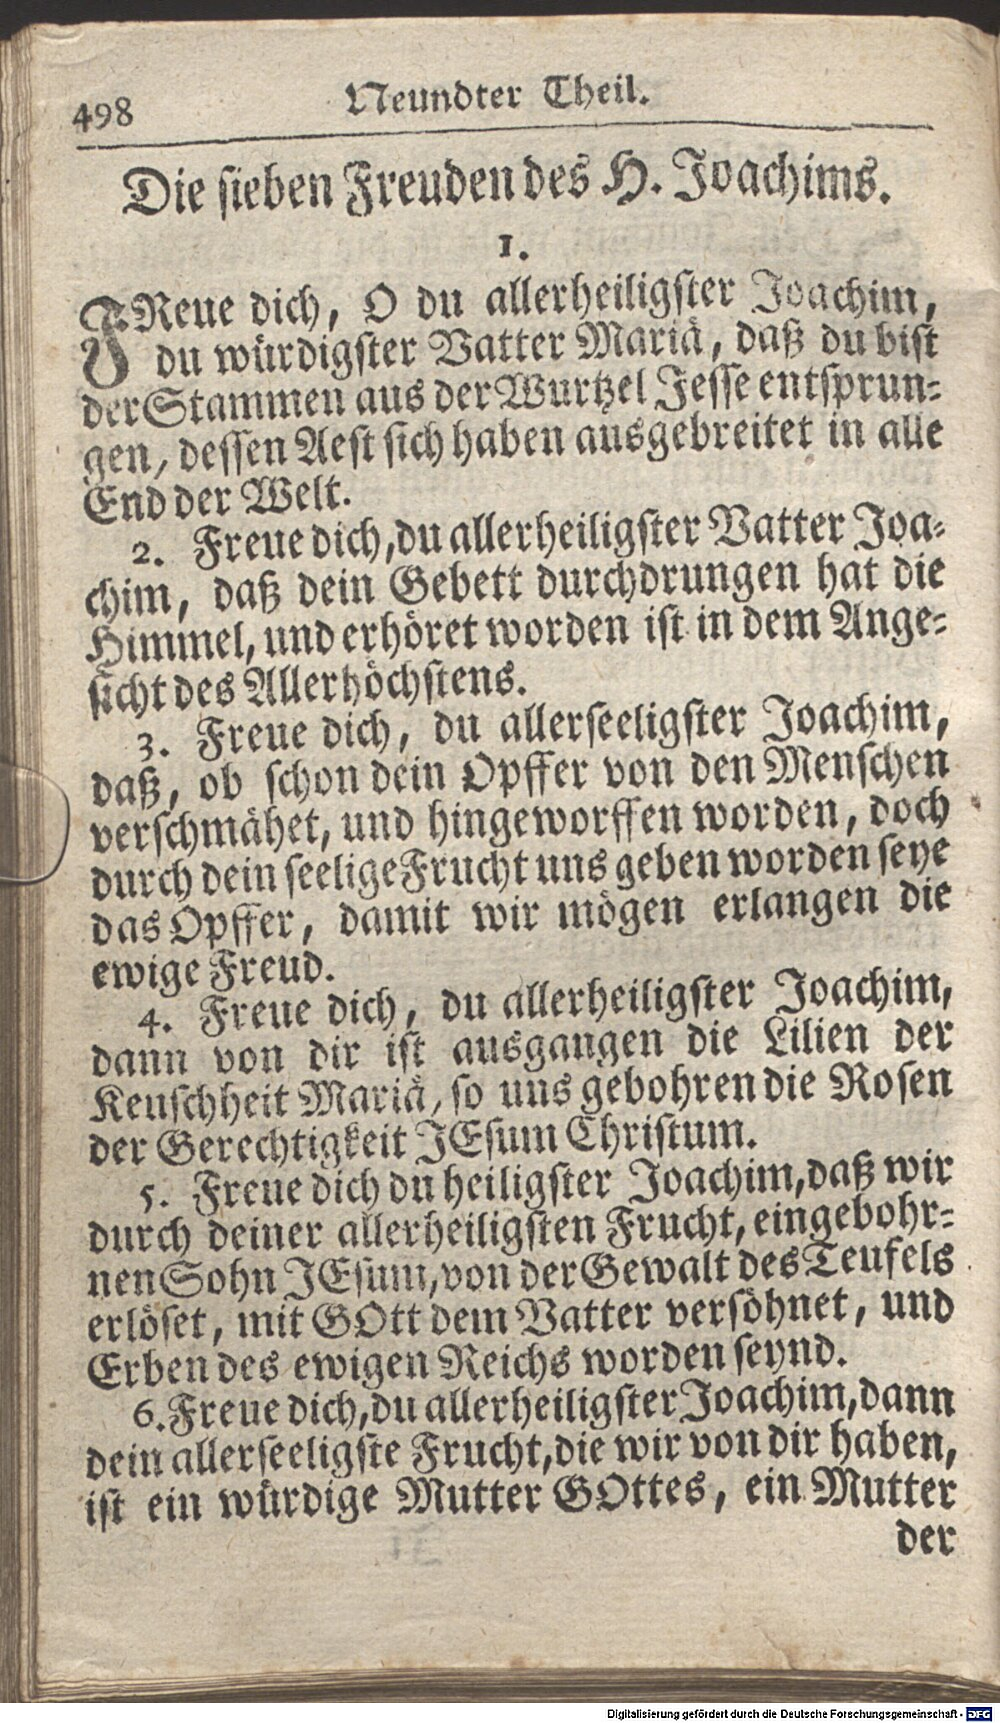 498
Neundter Theil.
Die sieben Freuden des H. Joachims.
1.
FReue dich, O du allerheiligster Joachim,
du würdigster Vatter Mariä, daß du bist
der Stammen aus der Wurtzel Jesse entsprun-
gen, dessen Aest sich haben ausgebreitet in alle
End der Welt.
2. Freue dich, du allerheiligster Vatter Joa-
chim, daß dein Gebett durchdrungen hat die
Himmel, und erhöret worden ist in dem Ange-
sicht des Allerhöchstens.
3. Freue dich, du allerseeligster Joachim,
daß, ob schon dein Opffer von den Menschen
verschmähet, und hingeworffen worden, doch
durch dein seelige Frucht uns geben worden seye
das Opffer, damit wir mögen erlangen die
ewige Freud.
4. Freue dich, du allerheiligster Joachim,
dann von dir ist ausgangen die Lilien der
Keuschheit Mariä, so uns gebohren die Rosen
der Gerechtigkeit JEsum Christum.
5. Freue dich du heiligster Joachim, daß wir
durch deiner allerheiligsten Frucht, eingebohr-
nen Sohn JEsum, von der Gewalt des Teufels
erlöset, mit GOtt dem Vatter versöhnet, und
Erben des ewigen Reichs worden seynd.
6. Freue dich, du allerheiligster Joachim, dann
dein allerseeligste Frucht, die wir von dir haben,
ist ein würdige Mutter GOttes, ein Mutter
der
Digitalisierung gefördert durch die Deutsche Forschungsgemeinschaft - DFG